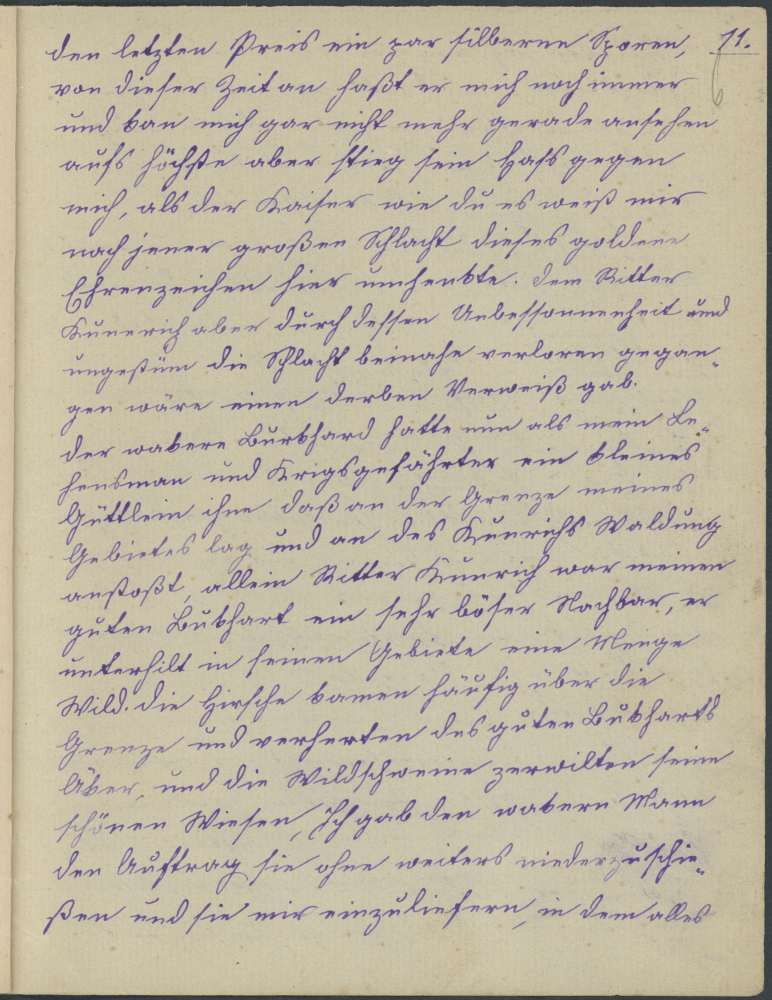 den letzten Preis ein par silberne Sporen, 11.
von dieser Zeit an haßt er mich noch immer
und kan mich gar nicht mehr gerade ansehen
aufs höchste aber stieg sein Hass gegen
mich, als der Kaiser wie du es weiß mir
nach jener großen Schlacht dieses goldene
Ehrenzeichen hier umhenkte. dem Ritter
Kunerich aber durch dessen Unbessonnenheit und
ungestüm die Schlacht beinahe verloren gegan„
gen wäre einen derben Verweiß gab.
der wakere Burkhard hatte nun als mein Le„
hensman und Krigsgefährter ein kleines
Güttlein ihne daß an der Grenze meines
Gebietes lag und an des Kunrichs Waldung
anstoßt, allein Ritter Kunrich war meinen
guten Bukhart ein sehr böser Nachbar, er
unterhilt in seinen Gebiete eine Menge
Wild. die Hirsche kamen häufig über die
Grenze und verherten des guten Bukharts
Äker, und die Wildschweine zerwilten seine
schönen Wiesen, Ich gab den wakern Mann
den Auftrag sie ohne weiters niederzuschie„
ßen und sie mir einzuliefern, in dem alles